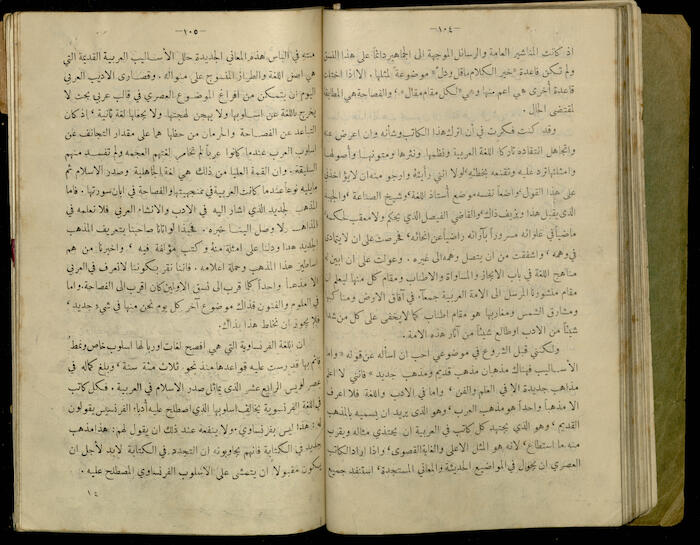 — ١٠٤ —
اذ كانت المناشير العامة والرسائل الموجهة الى الجماهير دائماً على هذا النسق
ولم تكن قاعدة «خير الكلام ما قل ودل» موضوعة لمثلها. الا اذا اختلت
قاعدة أخرى هي اعم منها وهي «لكل مقام مقال»، والفصاحة هي المطابقة
لمقتضى الحال.
وقد كنت فكرت في أن اترك هذا الكاتب وشأنه وان اعرض عنه
واتجاهل انتقاده تاركا اللغة العربية ونظمها ونثرها ومتونها وأصولها
وامثلتها ترد عليه وتقنعه بخطئه، لولا انني رأيته وارجو منه ان لا يؤاخذني
على هذا القول، واضعاً نفسه موضع أستاذ اللغة، وشيخ الصناعة، والجهبذ
الذي يقبل هذا ويزيف ذاك، والقاضي الفيصل الذي يحكم ولا معقب لحكمه،
ماضياً في غلوائه مسروراً بآرائه راضياً عن انحائه، فحرصت على ان لا يتمادى
في وهمه، واشفقت من ان يتصل وهمه الى غيره. وعولت على ان ابين
مناهج اللغة في باب الايجاز والمساواة والاطناب ومقام كل منها ليعلم ان
مقام منشورنا المرسل الى الامة العربية جمعاء في آفاق الارض ومناكبها
ومشارق الشمس ومغاربها هو مقام اطناب كما لا يخفى على كل من شدا
شيئاً من الادب او طالع شيئاً من آثار هذه الامة.
ولكني قبل الشروع في موضوعي احب ان اسأله عن قوله «واما
الأساليب فهناك مذهبان مذهب قديم ومذهب جديد» فانني لا اعلم
مذاهب جديدة الا في العلم والفن، واما في الادب واللغة فلا اعرف
الا مذهباً واحداً هو مذهب العرب، وهو الذي يريد ان يسميه بالمذهب
القديم، وهو الذي يجتهد كل كاتب في العربية ان يحتذي مثاله ويقرب
منه ما استطاع، لانه هو المثل الاعلى والغاية القصوى، واذا اراد الكاتب
العصري ان يجول في المواضيع الحديثة والمعاني المستجدة، استنفد جميع
— ١٠٥ —
منته في الباس هذه المعاني الجديدة حلل الأساليب العربية القديمة التي
هي اصل اللغة والطراز المنسوج على منواله. وقصارى الاديب العربي
اليوم ان يتمكن من افراغ الموضوع العصري في قالب عربي بحت لا
يخرج باللغة عن اسلوبها ولا يهجن لهجتها. ولا يجعلها لغة ثانية، اذ كان
التباعد عن الفصاحة والحرمان من حظها هما على مقدار التجانف عن
اسلوب العرب عندما كانوا عرباً لم تخامر لغتهم العجمة ولم تفسد منهم
السليقة. وان القمة العليا من ذلك هي لغة الجاهلية وصدر الاسلام ثم
ما يليه نوعا عندما كانت العربية في عنجهيتها والفصاحة في ابان سورتها. فاما
المذهب الجديد الذي اشار اليه في الادب والانشاء العربي فلا نعلمه في
المذاهب ولا وصل الينا خبره. فحبذا لو اتانا صاحبنا بتعريف المذهب
الجديد هذا ودلنا على امثلة منه وكتب مؤلفة فيه، واخبرنا من هم
اساطين هذا المذهب وحملة اعلامه. فاننا نقر بكوننا لا نعرف في العربي
الا مذهباً واحداً كما قرب الى نسق الاولين كان اقرب الى الفصاحة. واما
في العلوم والفنون فذاك موضوع آخر كل يوم نحن منها في شيء جديد،
فلا يجوز ان نخلط هذا بذاك.
ان اللغة الفرنساوية التي هي افصح لغات اوربا لها اسلوب خاص ونمط
قائم بها قد رست عليه قواعدها منذ نحو ثلاث مئة سنة، وبلغ كماله في
عصر لويس الرابع عشر الذي يماثل صدر الاسلام في العربية. فكل كاتب
في اللغة الفرنسوية يخالف اسلوبها الذي اصطلح عليه أدباء الفرنسيس يقولون
له: هذا ليس بفرنساوي. ولا ينفعه عند ذلك ان يقول لهم: هذا مذهب
جديد في الكتابة فانهم يجاوبونه ان التجدد في الكتابة لا بد لأجل ان
يكون مقبولا ان يتمشى على الاسلوب الفرنساوي المصطلح عليه.
١٤